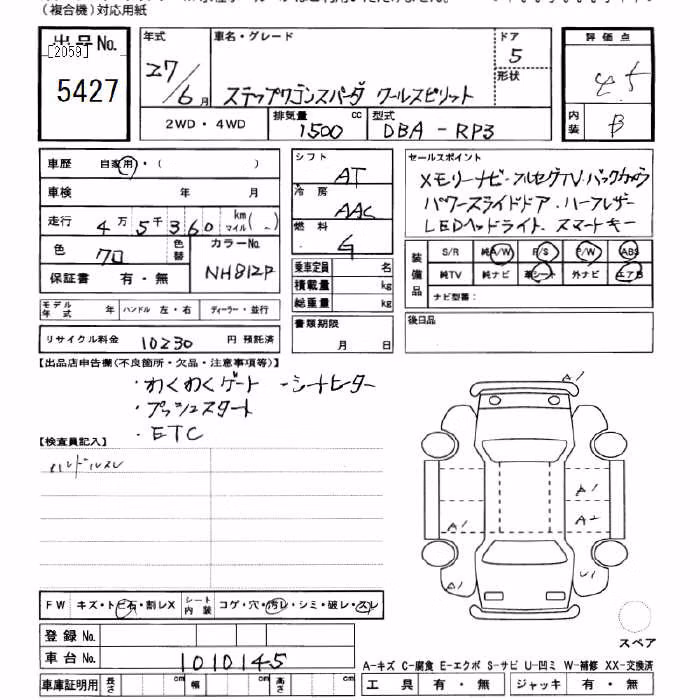 (複合機)対応用紙
出品No.
[2059]
5427
年式
27/6月
車名・グレード
ステップワゴンスパーダ クールスピリット
ドア
5
形状
評価点
4.5
内装
B
2WD・4WD
排気量
1500 cc
型式
DBA-RP3
車歴 自家用・( )
車検 年 月
走行 4万5千360 km マイル( )
色 クロ
色替
カラーNo.
NH812P
保証書 有・無
モデル年式 年 ハンドル 左・右 ディーラー・並行
リサイクル料金 10230 円 預託済
シフト
AT
冷房
AAC
燃料
G
乗車定員 名
積載量 kg
総重量 kg
書類期限
月 日
セールスポイント
メモリーナビ・フルセグTV・バックカメラ
パワースライドドア・ハーフレザー
LEDヘッドライト・スマートキー
装備品
S/R 純A/W P/S P/W ABS
純TV 純ナビ 革シート 外ナビ エアB
ナビ型番:
後日品
【出品店申告欄(不良箇所・欠品・注意事項等)】
・わくわくゲート ・シートヒーター
・プッシュスタート
・ETC
【検査員記入】
ハンドルスレ
A1
A1
A2
A1
A1
U1
スペア
FW キズ・トビ石・割レX シート内装 コゲ・穴・汚レ・シミ・破レ・スレ
登録No.
車台No. 1010145
A-キズ C-腐食 E-エクボ S-サビ U-凹ミ W-補修 XX-交換済
車庫証明用 長さ cm 幅 cm 高さ cm
工具 有・無 ジャッキ 有・無